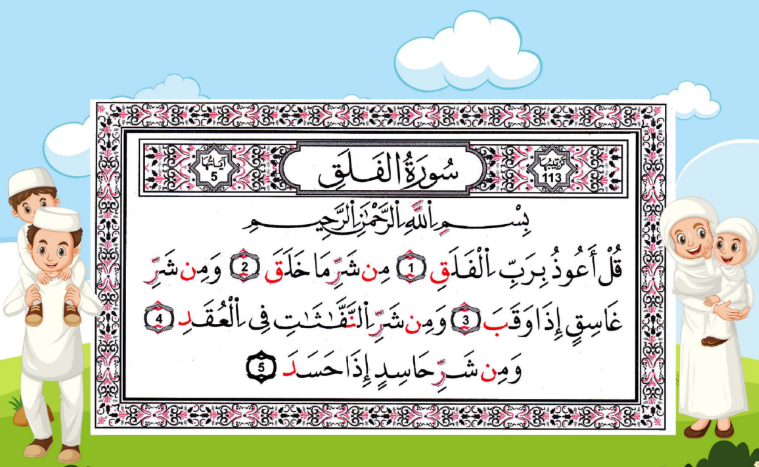 ترتيبها 113 سُورَةُ الفَلَقِ آياتها 5
بِسْمِ اللَّهِ الرَّحْمَٰنِ الرَّحِيمِ
قُلْ أَعُوذُ بِرَبِّ اِ۬لْفَلَقِ 1 مِن شَرِّ مَا خَلَقَ 2 وَمِن شَرِّ
غَاسِقٍ إِذَا وَقَبَ 3 وَمِن شَرِّ اِ۬لنَّفَّٰثَٰتِ فِي اِ۬لْعُقَدِ 4
وَمِن شَرِّ حَاسِدٍ إِذَا حَسَدَ 5